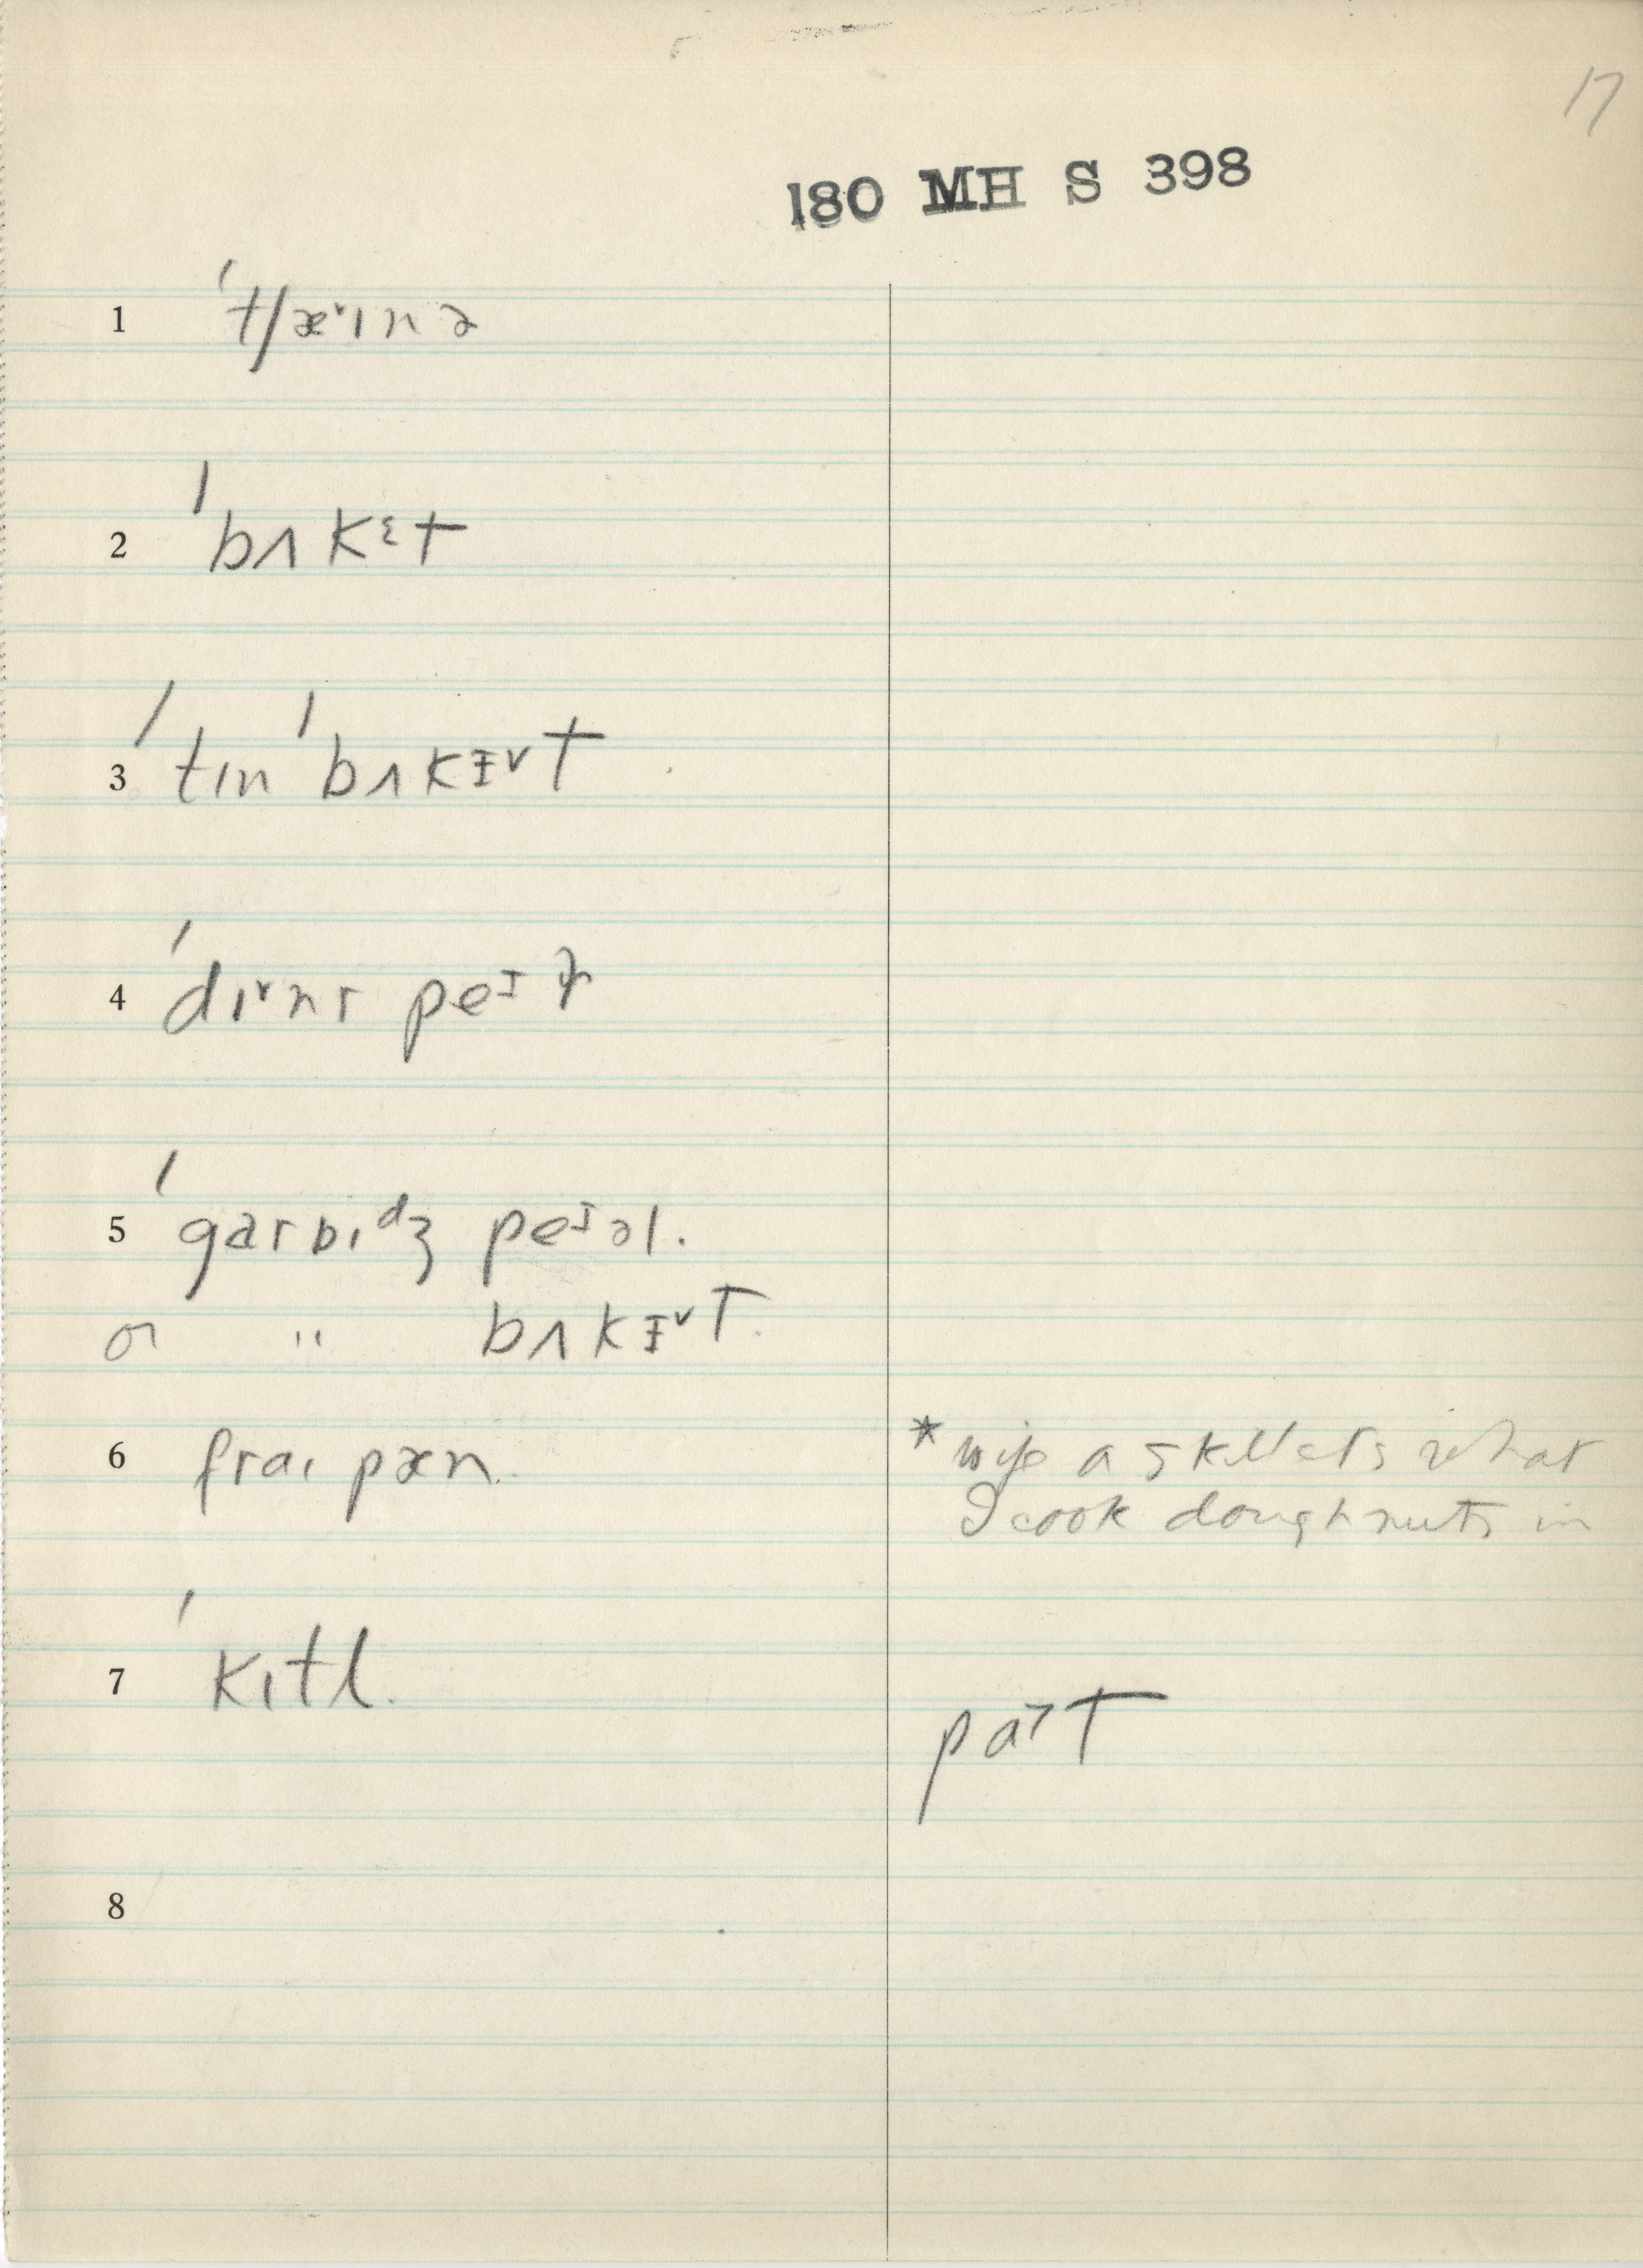 17
180 MH S 398
1 ˈtʃæ˅ɪnə
2 ˈbʌkɛt
3 ˈtɪn ˈbʌkɪ˅t
4 ˈdɪ˅nr peɪ
5 ˈgarbɪdʒ peɪəl.
or " bʌkɪ˅t.
6 fraɪ pæn.
* a skillets what
I cook doughnuts in
7 ˈkɪtl.
pa˃t
8